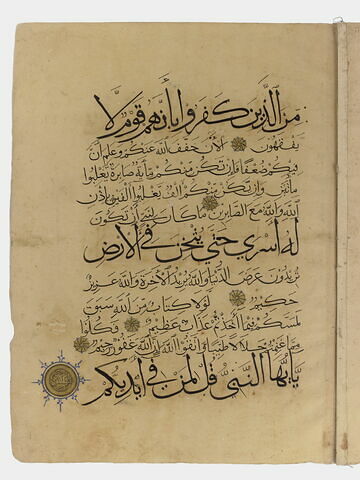 من الذين كفروا بأنهم قوم لا
يفقهون الآن خفف الله عنكم وعلم أن
فيكم ضعفا فإن تكن منكم مائة صابرة يغلبوا
مائتين وإن تكن منكم ألف يغلبوا ألفين بإذن
الله والله مع الصابرين ما كان لنبي أن تكون
له أسرى حتى يثخن في الأرض
تريدون عرض الدنيا والله يريد الآخرة والله عزيز
حكيم لولا كتاب من الله سبق
لمسكم فيما أخذتم عذاب عظيم فكلوا
مما غنمتم حلالا طيبا واتقوا الله إن الله غفور رحيم
يا أيها النبي قل لمن في أيديكم